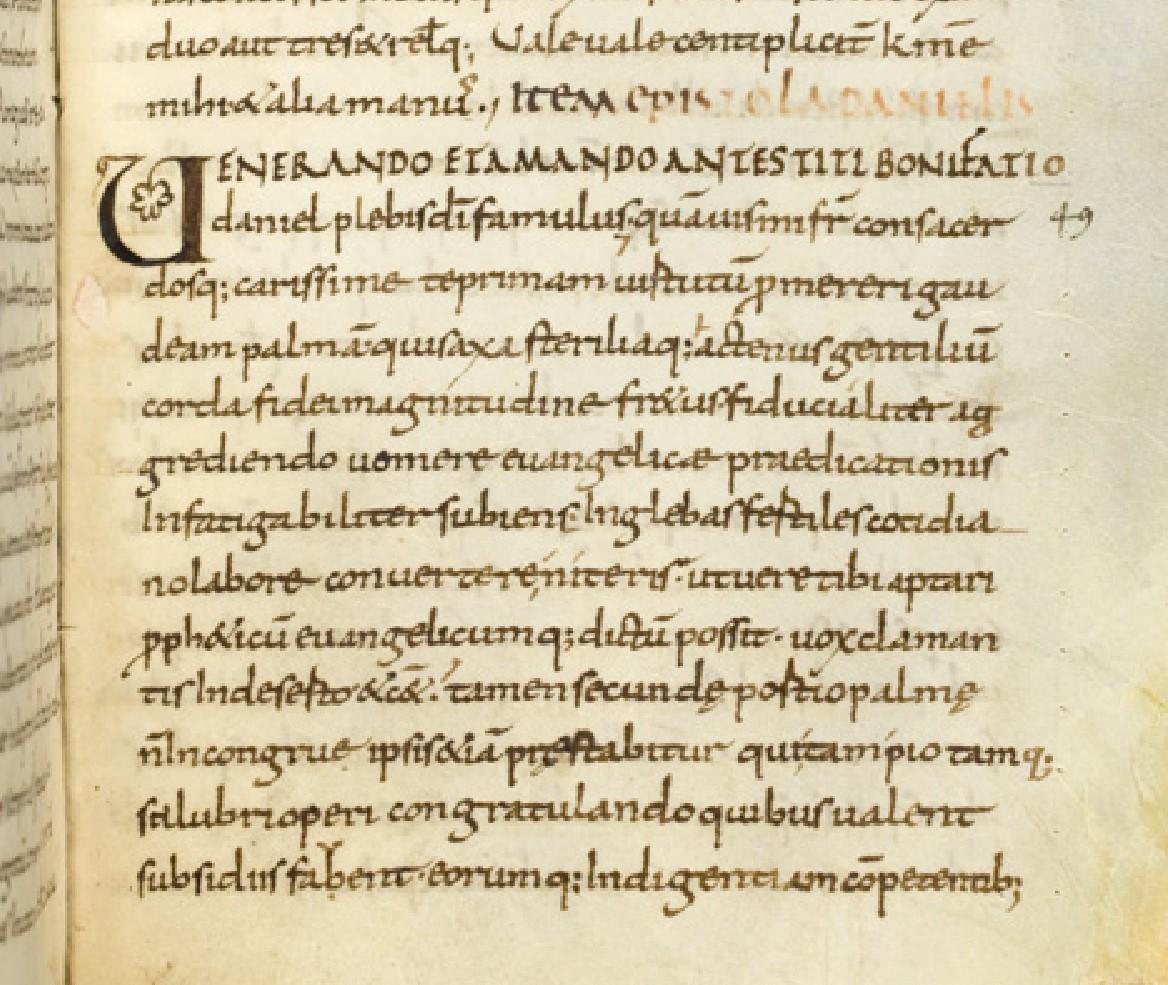 duo aut tres & relq; Uale uale centiplicit̄ km̄e
mihi & alia manu.,
ITEM EPISTOLA DANIELIS
UENERANDO ET AMANDO ANTESTITI BONIFATIO
daniel plebis dī famulus quāuis mi fr̄ consacer
49
dosq; carissime te primam uirtutū ꝓmereri gau
deam palmā qui saxa steriliaq; actenus gentiliū
corda fidei magnitudine fr&us fiducialiter ag
grediendo uomere euangelicae praedicationis
Infatigabiliter subiens In glebas festiles cotidia
no labore conuertere niteris · ut uere tibi aptari
ꝓph&icū euangelicumq; dictū possit · uox claman
tis In deserto & c& tamen secundę postio palmę
n̄ Incongrue ipsis &iā pręstabitur qui tam pio tamq;
salubri operi congratulando quibus ualent
subsidiis fabent · eorumq; Indigentiam cōpetentib;